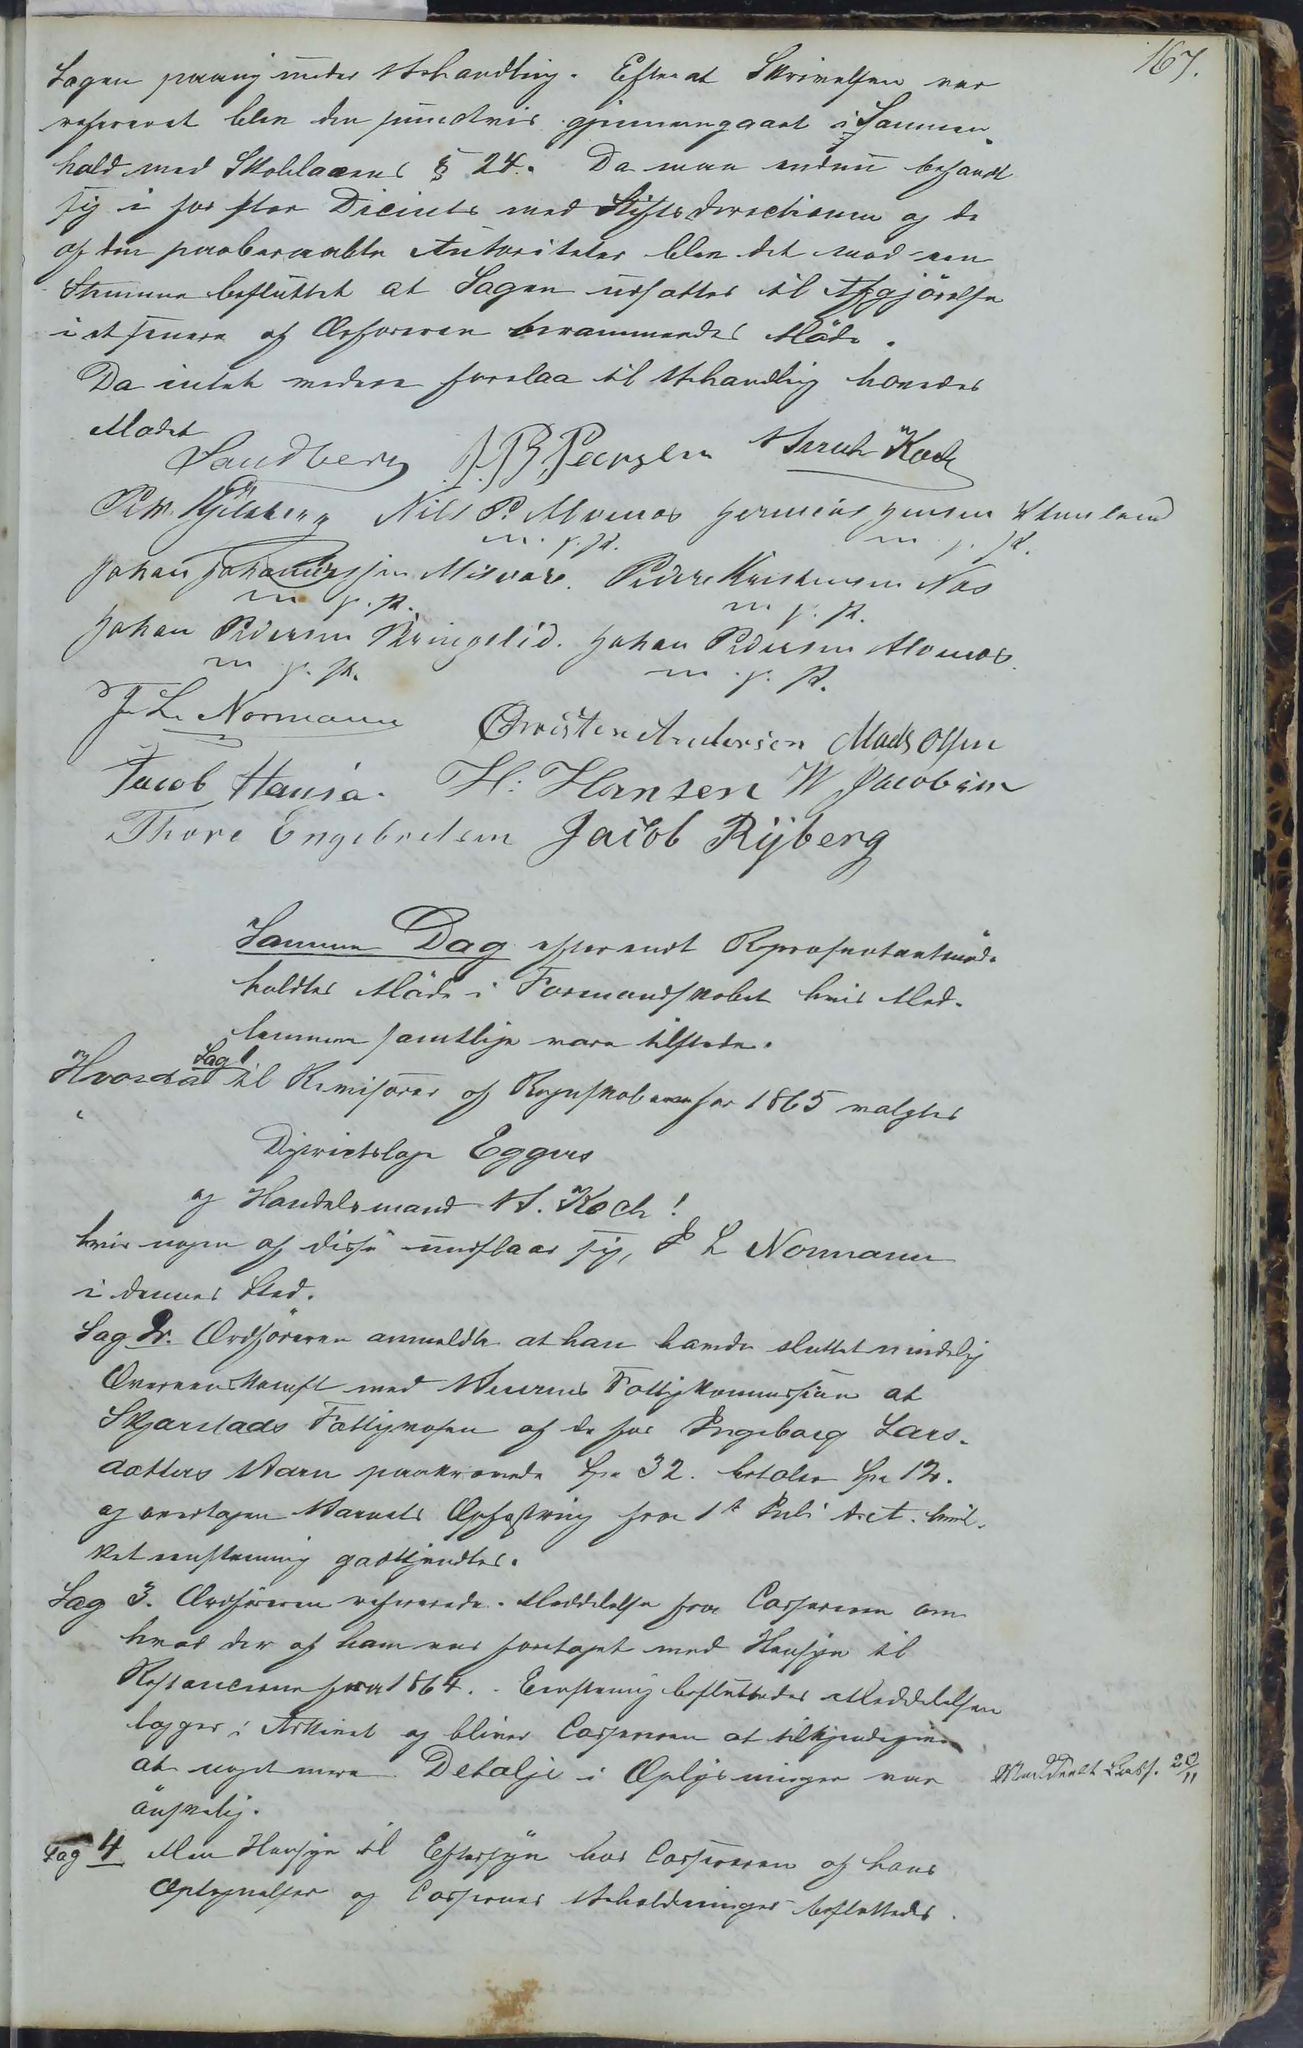 167.
Sagen paany under Behandling. Efterat Skrivelsen var
refereret blev den punctvis gjennemgaaet i Sammen-
hold med Skolelovens § 24. Da man endnu befandt
sig i for stor Dicints med Stiftsdirectionen og de
af den paaberaabte Autoriteter blev det mod een
Stemme besluttet at Sagen udsattes til Afgjörelse
i et senere af Ordføreren berammendes Möde.
Da intet videre forelaa til Behandling hævedes
Mødet
Sandberg J. B. Pedersen Bernh Koch
Nils P. Alvenes Jensen
m. p. P. m. p. P.
Johan Johannessen Misvær. Peder Kristensen Næs
m. p. P. m. p. P.
Johan Pedersen Kringelid. Johan Pedersen Alvenes
m. p. P. m. p. P.
J. L. Normann Christen Andersen Mads Olsen
Jacob Hansen. H. Hansen W Jacobsen
Thore Engebretsen Jacob Ryberg
Samme Dag efter endt Repræsentantmöde
holdtes Möde i Formandskabet hvis Med-
lemmer samtlige vare tilstede.
Sag 1
Hvorda til Revisorer af Regnskaberne for 1865 valgtes
Districtslæge Eggers
og Handelsmand B. Koch!
hvis nogen af disse undslaar sig, J L Normann
i dennes Sted.
Sag 2. Ordföreren anmeldte at han havde sluttet mindelig
Overeenskomst med Fattigkommission at
Skjerstads Fattigvæsen af de for Ingeborg Lars-
datters Barn paakrævede Spd 32. betaler Spd 12.
og overtager Barnets Opfostring fra 1ste Juli hvil-
ket eenstemmig godkjendtes.
Sag 3. Ordföreren refererede Meddelelse fra Cassereren om
hvad der af ham var foretaget med Hensyn til
Restancerne for 1864. Eenstemmig besluttedes Meddelelsen
lægges i Arkivet og bliver Cassereren at tilkjendegive
at noget mere Detalje i Oplysninger var
önskelig.
Meddeelt 20/11
Sag 4 Med Hensyn til Eftersyn hos Cassereren af hans
Optegnelser og Cassernes Beholdninger besluttedes